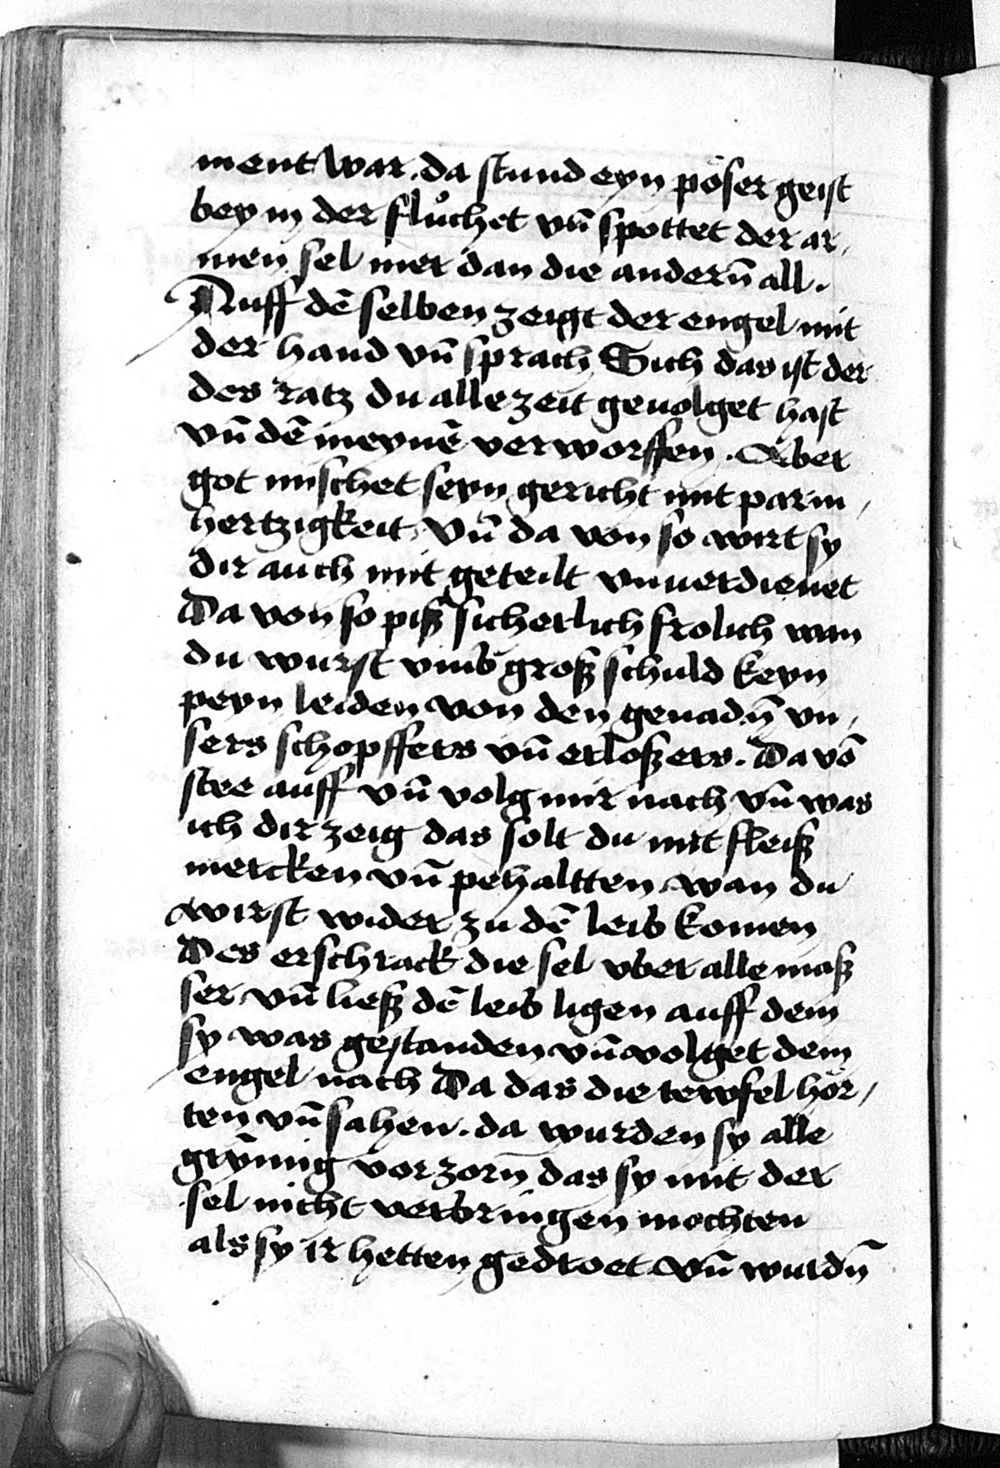 ment war. da stund eyn pöser geist
bey in der flůchet vn̄ spottet der ar,
men sel mer dan die andern̄ all.
Auff dē selben zeigt der engel mit
der hand vn̄ sprach Sich das ist der
des ratz du alle zeit geuolget hast
vn̄ dē meynē verworffen. Aber
got mischet seyn gericht mit parm,
hertzigkeit, vn̄ da von so wirt sy
dir auch mit geteilt vnuerdienet
Da von so piß sicherlich frolich wan
du wurst vmb groß schuld keyn
peyn leiden von den genadn̄ vn,
sers schopffers vn̄ erloßers. Da vō
stee auff vn̄ volg mir nach vn̄ was
ich dir zeig das solt du mit fleiß
mercken vn̄ pehaltten wan du
wirst wider zu dē leib komen
Des erschrack die sel vber alle maß
ser vn̄ ließ dē leib ligen auff dem
sy was gestanden vn̄ volget dem
engel nach Da das die tewfel hör,
ten vn̄ sahen. da wurden sy alle
grȳmig vor zorn̄ das sy mit der
sel nicht verbringen mochten
als sy ir hetten gedroet vn̄ wurdn̄